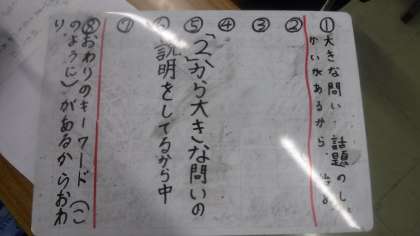 ①
大きな問い・話題のし
かいがあるから
②
③
④
⑤
⑥
⑦
「2」から大きな問いの
説明をしてるから中
⑧
おわりのキーワード(こ
のように)があるからおわ
り